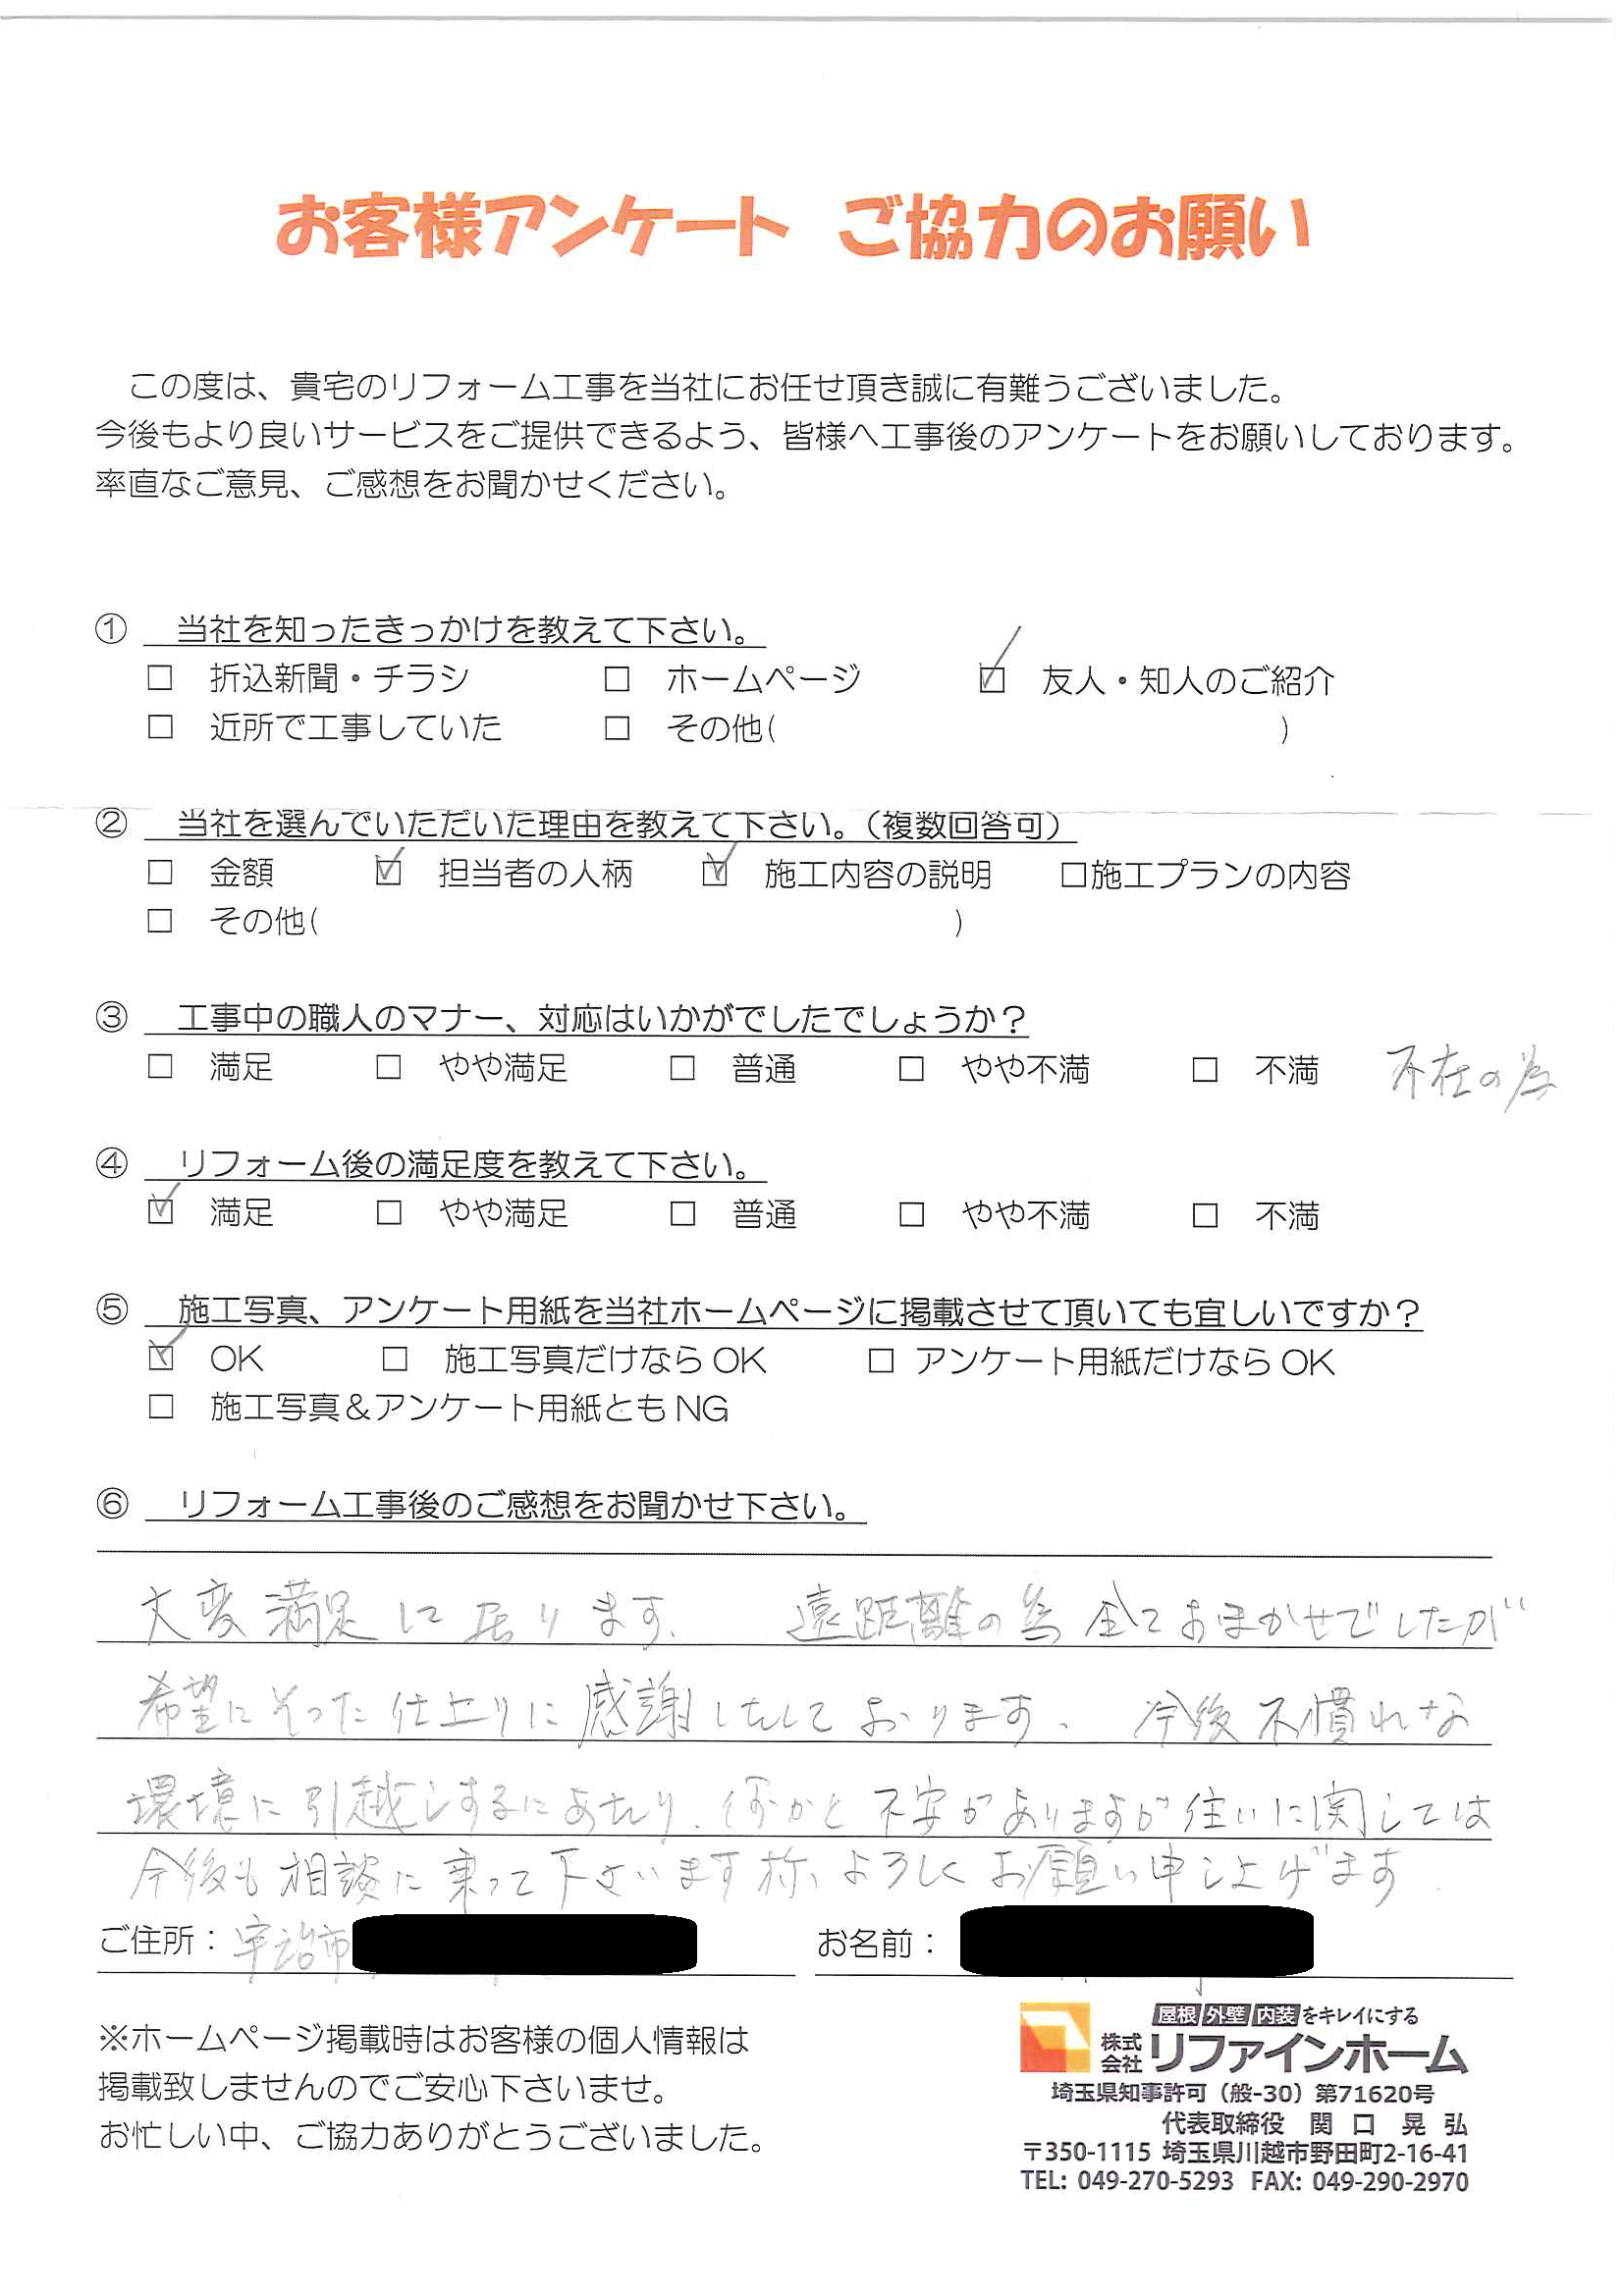 お客様アンケート ご協力のお願い
この度は、貴宅のリフォーム工事を当社にお任せ頂き誠に有難うございました。
今後もより良いサービスをご提供できるよう、皆様へ工事後のアンケートをお願いしております。
率直なご意見、ご感想をお聞かせください。
① 当社を知ったきっかけを教えて下さい。
□ 折込新聞・チラシ □ ホームページ ☑ 友人・知人のご紹介
□ 近所で工事していた □ その他( )
② 当社を選んでいただいた理由を教えて下さい。(複数回答可)
□ 金額 ☑ 担当者の人柄 ☑ 施工内容の説明 □施工プランの内容
□ その他( )
③ 工事中の職人のマナー、対応はいかがでしたでしょうか?
□ 満足 □ やや満足 □ 普通 □ やや不満 □ 不満 不在の為
④ リフォーム後の満足度を教えて下さい。
☑ 満足 □ やや満足 □ 普通 □ やや不満 □ 不満
⑤ 施工写真、アンケート用紙を当社ホームページに掲載させて頂いても宜しいですか?
☑ OK □ 施工写真だけなら OK □ アンケート用紙だけなら OK
□ 施工写真&アンケート用紙とも NG
⑥ リフォーム工事後のご感想をお聞かせ下さい。
大変満足して居ります、 遠距離の為全ておまかせでしたが
希望にそった仕上りに感謝いたしております、 今後不慣れな
環境に引越しするにあたり、何かと不安がありますが住いに関しては
今後も相談に乗って下さいます様、よろしくお願い申し上げます.
ご住所: 宇治市 お名前:
※ホームページ掲載時はお客様の個人情報は
掲載致しませんのでご安心下さいませ。
お忙しい中、ご協力ありがとうございました。
屋根 外壁 内装をキレイにする
株式会社リファインホーム
埼玉県知事許可(般-30)第71620号
代表取締役 関口晃弘
〒350-1115 埼玉県川越市野田町2-16-41
TEL: 049-270-5293 FAX: 049-290-2970